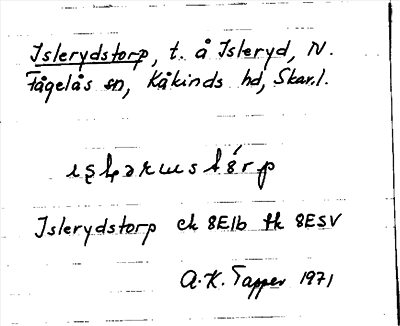 Islerydstorp, t. å Isleryd, N.
Fågelås sn, Kåkinds hd, Skar.l.
Islerydstorp ek 8E1b fk 8ESV
A.K. Tapper 1971